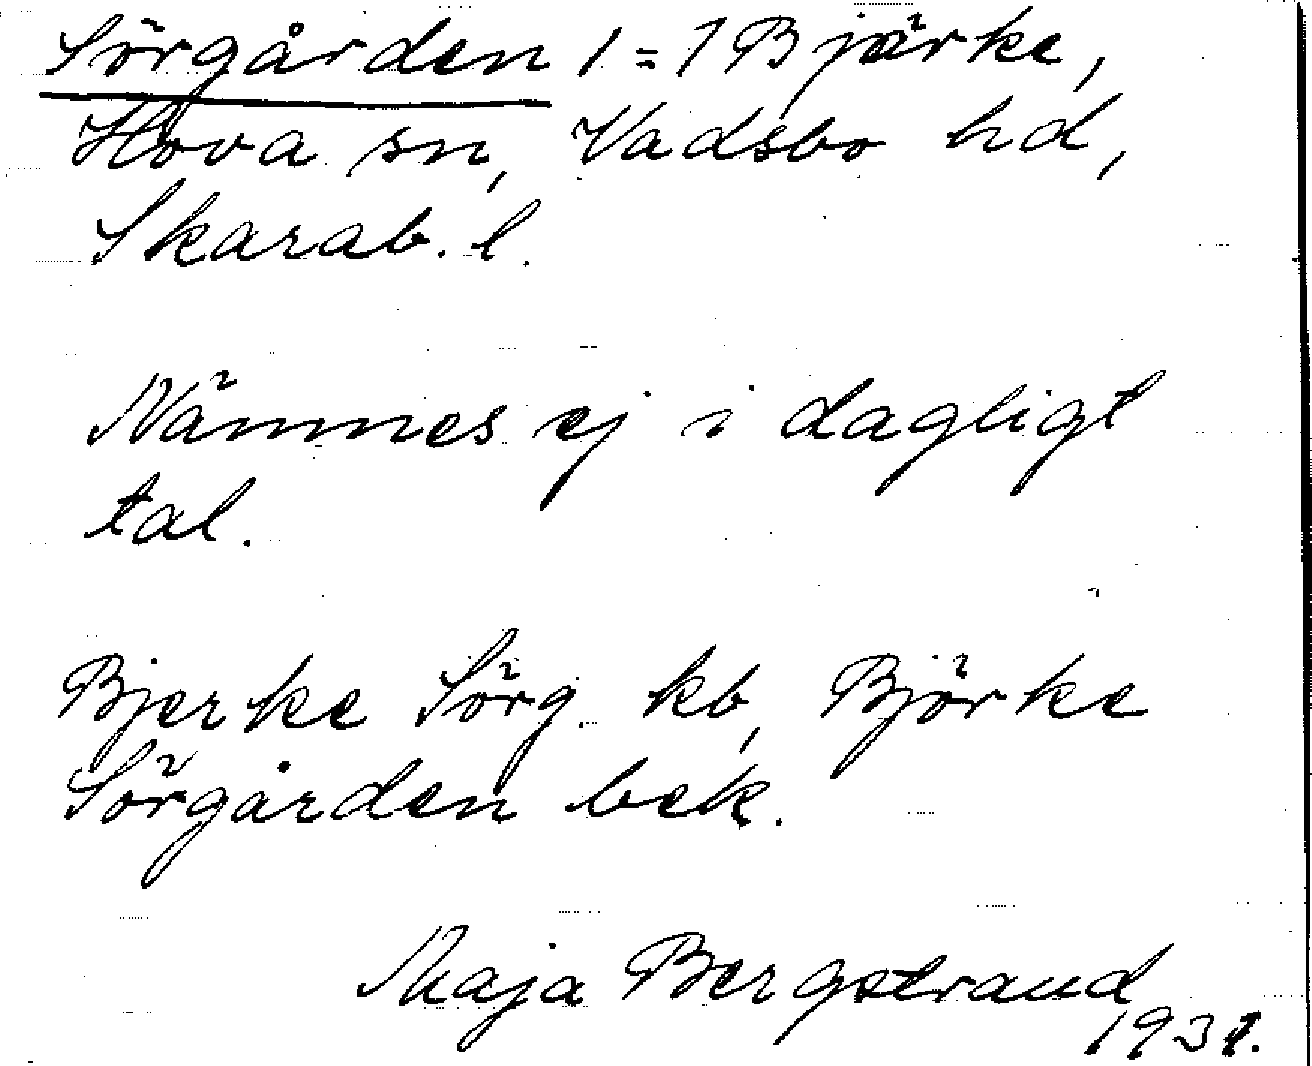 Sörgården 1=1 Bjärke,
Hova sn, Vadsbo hd,
Skarab. l.
Nämnes ej i dagligt
tal.
Bjerke Sörg. kb, Björke
Sörgården bek.
Maja Bergstrand
1931.